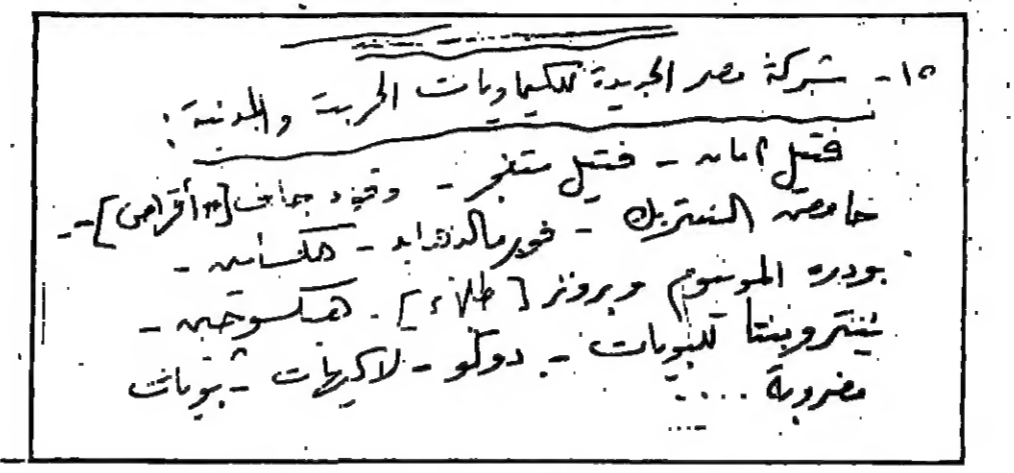 ١٥- شركة مصر الجديدة للكيماويات الحربية والمدنية :
فتيل أمان - فتيل متفجر - وقود جاف [* أقراص] -
حامض النيتريك - فورمالدهايد - هكسامين -
بودرة الومنيوم وبرونز [طلاء] . هكسوجين -
للبويات - دوكو - لاكيهات - بويات
مضروبة ....